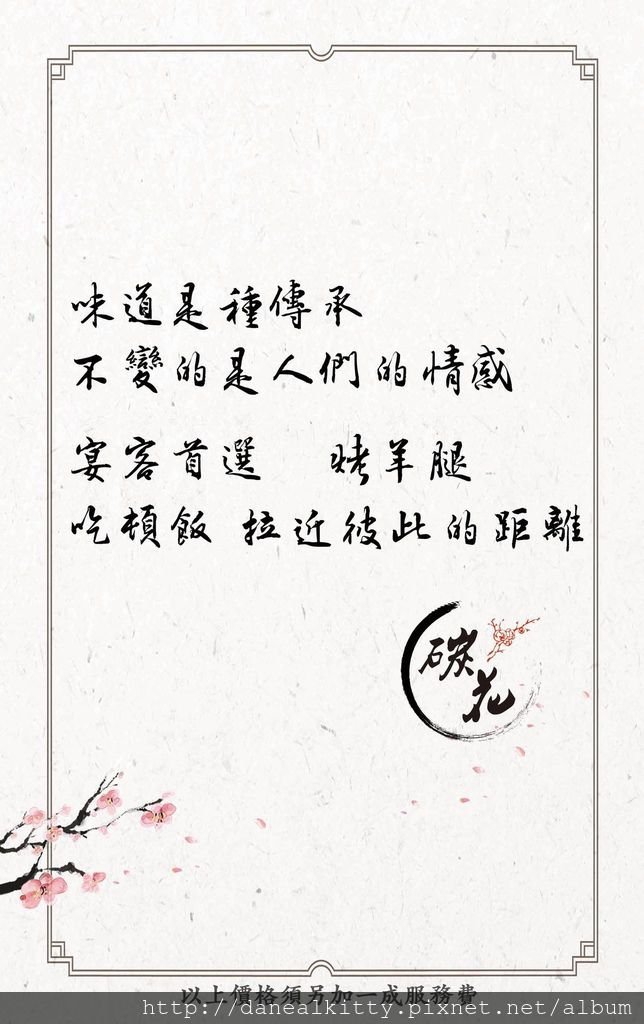 味道是種傳承
不變的是人們的情感
宴客首選 烤羊腿
吃頓飯 拉近彼此的距離
碳花
以上價格須另加一成服務費
http://danealkitty.pixnet.net/album